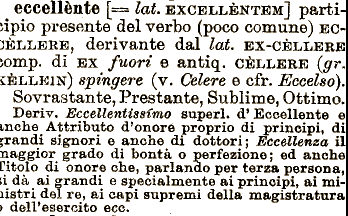 eccellènte [= lat. EXCELLÈNTEM] parti-
cipio presente del verbo (poco comune) EC-
CÈLLERE, derivante dal lat. EX-CÈLLERE
comp. di EX fuori e antiq. CÈLLERE (gr.
KÈLLEIN) spingere (v. Celere e cfr. Eccelso).
Sovrastante, Prestante, Sublime, Ottimo.
Deriv. Eccellentissimo superl. d'Eccellente e
anche Attributo d'onore proprio di principi, di
grandi signori e anche di dottori; Eccellenza il
maggior grado di bontà o perfezione; ed anche
Titolo di onore che, parlando per terza persona,
si dà ai grandi e specialmente ai principi, ai mi-
nistri del re, ai capi supremi della magistratura
o dell'esercito ecc.